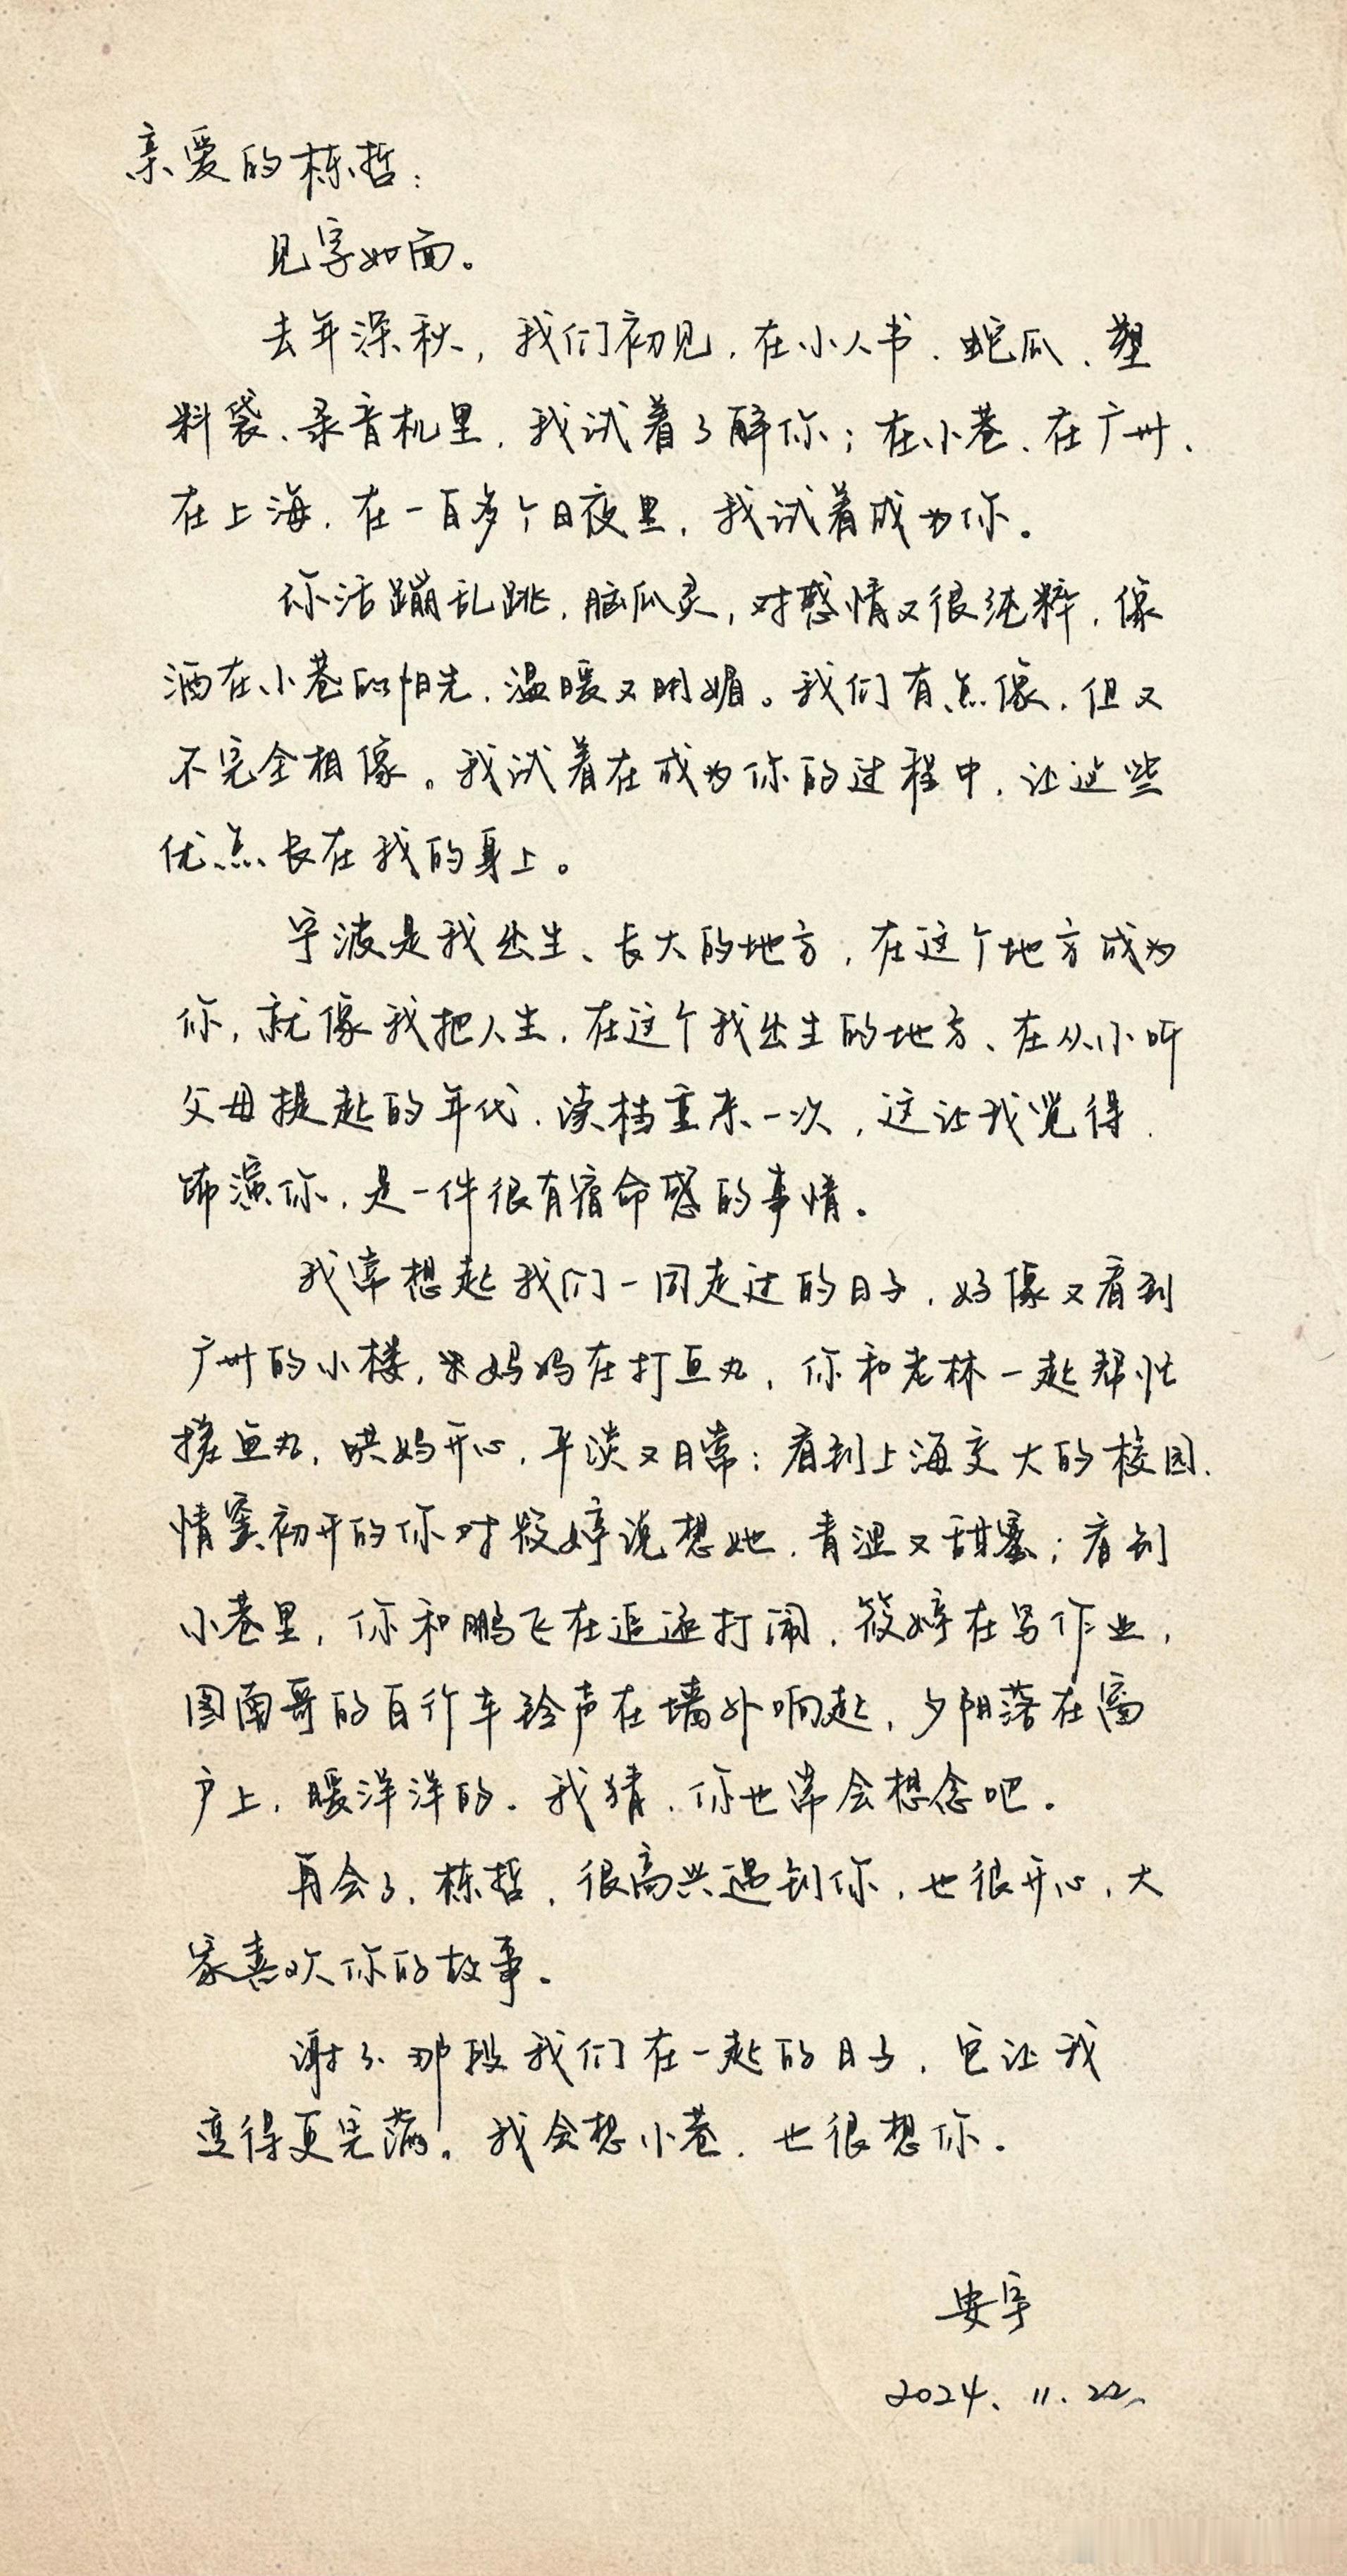 亲爱的栋哲：
见字如面。
去年深秋，我们初见，在小人书、蛇瓜、塑
料袋、录音机里，我试着了解你；在小巷、在广州、
在上海，在一百多个日夜里，我试着成为你。
你活蹦乱跳，脑瓜灵，对感情又很纯粹，像
洒在小巷的阳光，温暖又明媚。我们有点像，但又
不完全相像。我试着在成为你的过程中，让这些
优点长在我的身上。
宁波是我出生、长大的地方，在这个地方成为
你，就像我把人生，在这个我出生的地方、在从小听
父母提起的年代，读档重来一次，这让我觉得，
饰演你，是一件很有宿命感的事情。
我常想起我们一同走过的日子，好像又看到
广州的小楼，妈妈在打鱼丸，你和老林一起帮忙
搓鱼丸，哄妈开心，平淡又日常；看到上海交大的校园，
情窦初开的你对筱婷说想她，青涩又甜蜜；看到
小巷里，你和鹏飞在追逐打闹，筱婷在写作业，
图南哥的自行车铃声在墙外响起，夕阳落在窗
户上，暖洋洋的。我猜，你也常会想念吧。
再会了，栋哲，很高兴遇到你，也很开心，大
家喜欢你的故事。
谢了，那段我们在一起的日子，它让我
变得更完满。我会想小巷，也很想你。
安宇
2024、11.22、